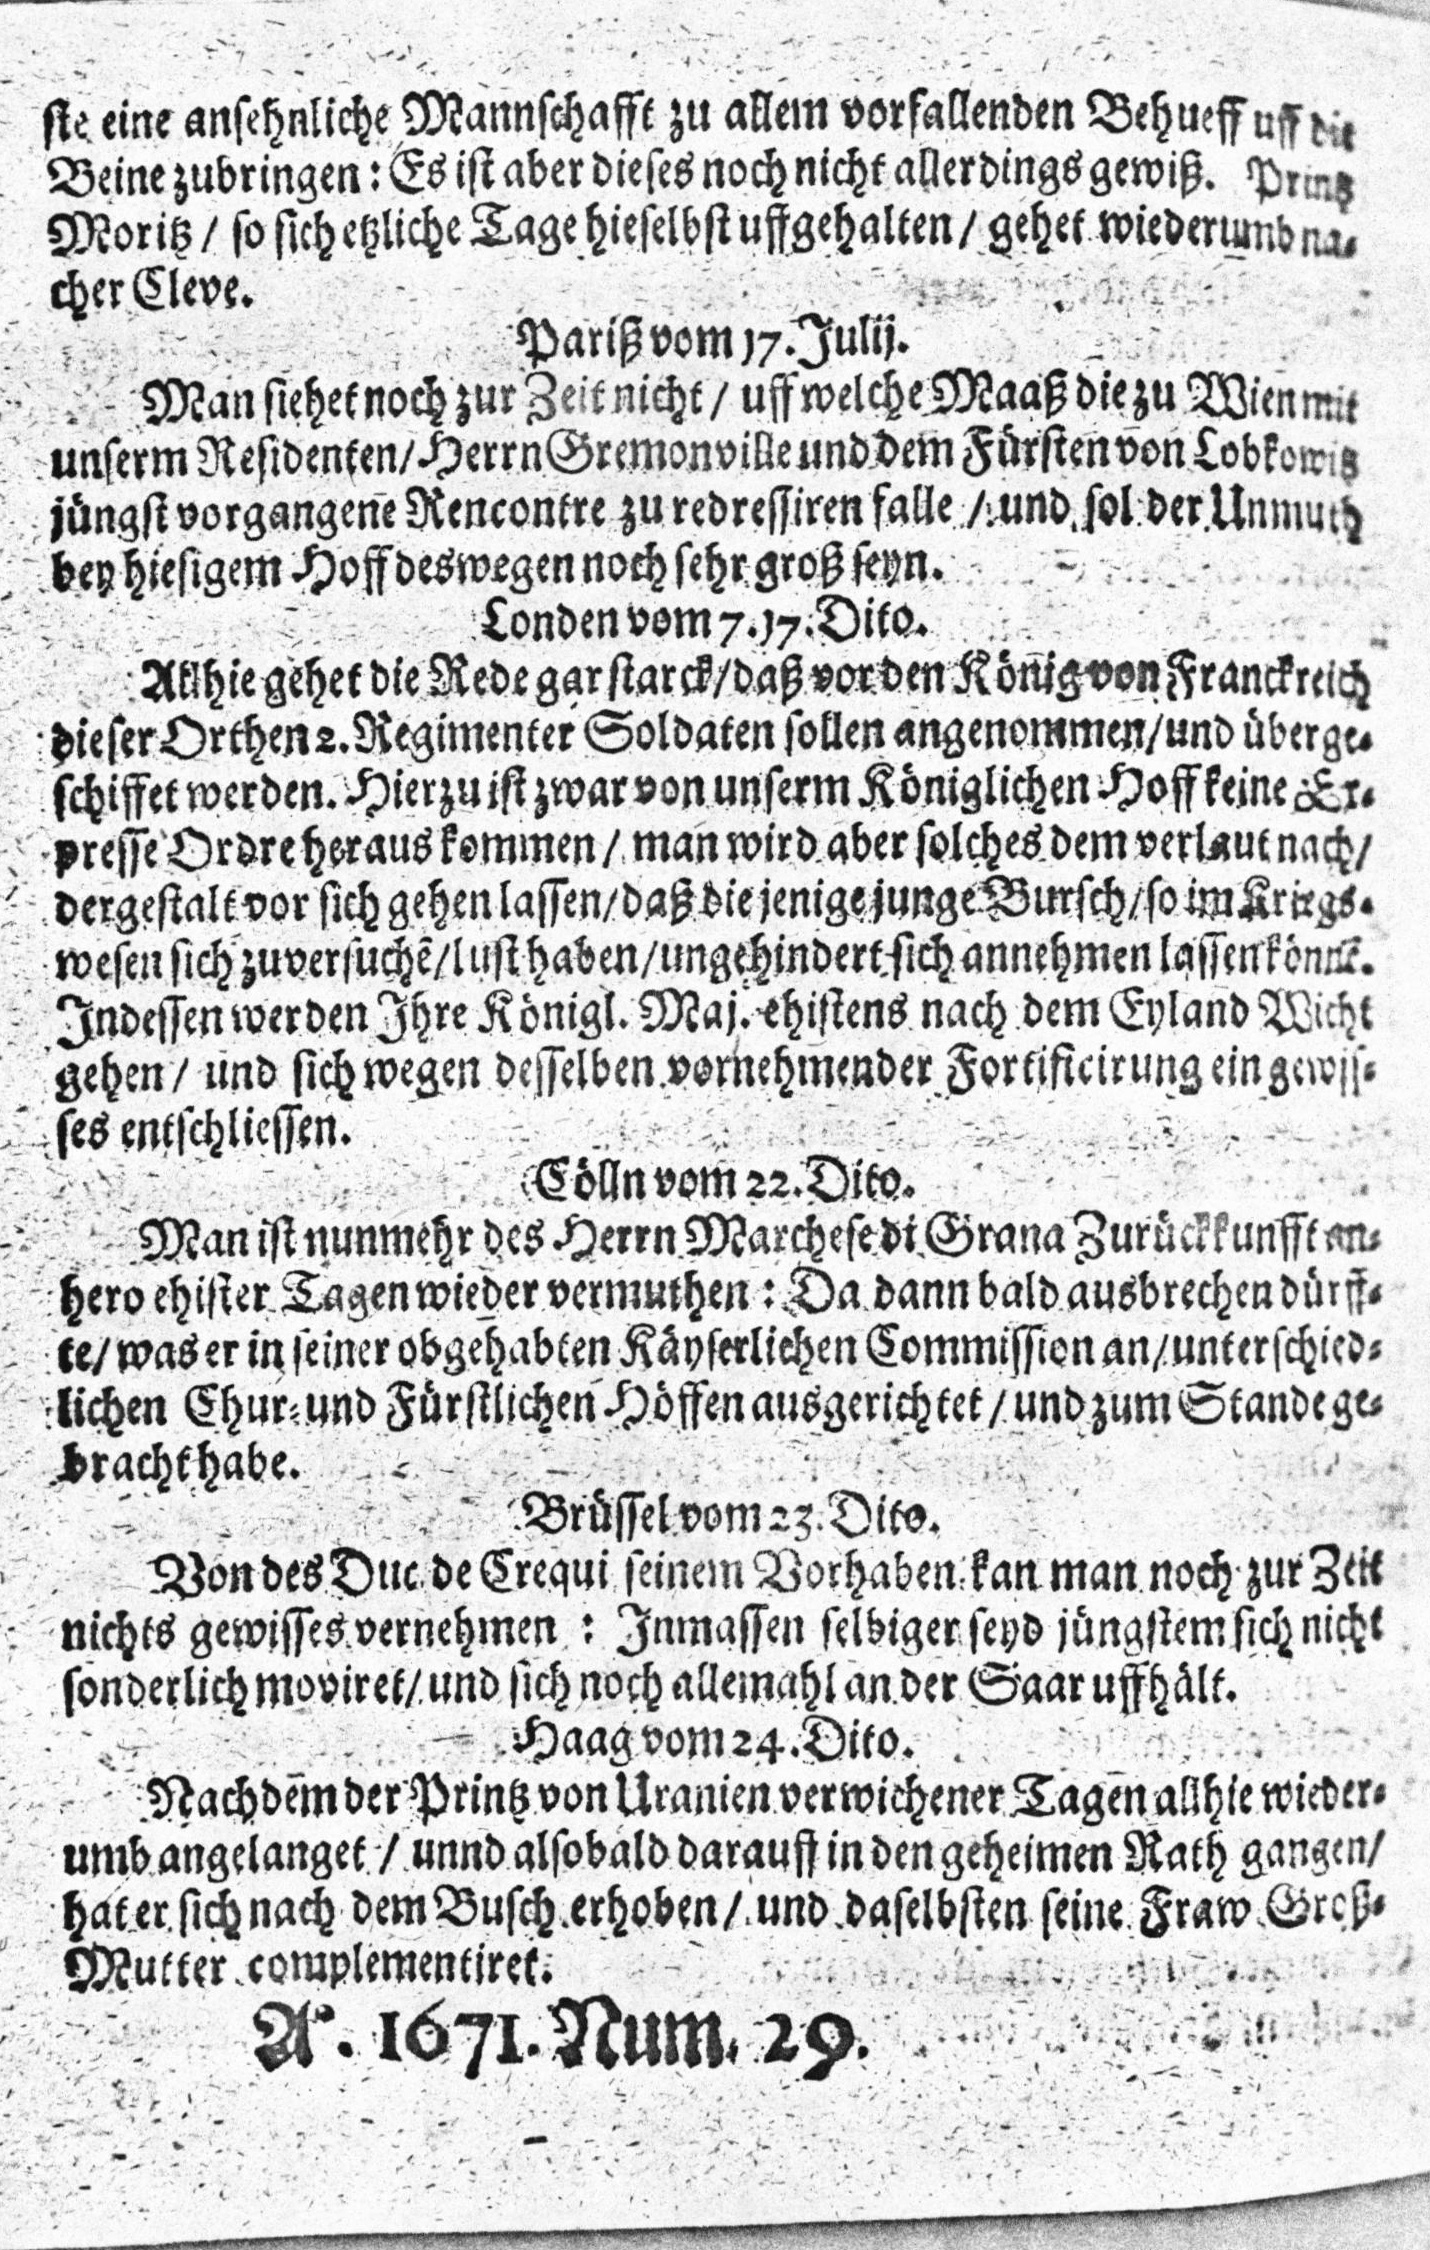 ste eine ansehnliche Mannschafft zu allem vorfallenden Behueff uff die
Beine zubringen: Es ist aber dieses noch nicht allerdings gewiß. Printz
Moritz / so sich etzliche Tage hieselbst uffgehalten / gehet wiederumb na-
cher Cleve.
Pariß vom 17. Julij.
Man siehet noch zur Zeit nicht / uff welche Maaß die zu Wien mit
unserm Residenten / Herrn Gremonville und dem Fürsten von Lobkowitz
jüngst vorgangene Rencontre zu redressiren falle / und sol der Unmuth
bey hiesigem Hoff deswegen noch sehr groß seyn.
Londen vom 7. 17. Dito.
Allhie gehet die Rede gar starck / daß vor den König von Franckreich
dieser Orthen 2. Regimenter Soldaten sollen angenommen / und überge-
schiffet werden. Hierzu ist zwar von unserm Königlichen Hoff keine Ex-
presse Ordre heraus kommen / man wird aber solches dem verlaut nach /
dergestalt vor sich gehen lassen / daß die jenige junge Bursch / so im Kriegs-
wesen sich zuversuchē / lust haben / ungehindert sich annehmen lassen könnē.
Indessen werden Ihre Königl. Maj. ehistens nach dem Eyland Wicht
gehen / und sich wegen desselben vornehmender Fortificirung ein gewis-
ses entschliessen.
Cölln vom 22. Dito.
Man ist nunmehr des Herrn Marchese di Grana Zurückkunfft an-
hero ehister Tagen wieder vermuthen : Da dann bald ausbrechen dürff-
te / was er in seiner obgehabten Käyserlichen Commission an / unterschied-
lichen Chur- und Fürstlichen Höffen ausgerichtet / und zum Stande ge-
bracht habe.
Brüssel vom 23. Dito.
Von des Duc de Crequi seinem Vorhaben kan man noch zur Zeit
nichts gewisses vernehmen : Inmassen selbiger seyd jüngstem sich nicht
sonderlich moviret / und sich noch allemahl an der Saar uffhält.
Haag vom 24. Dito.
Nachdem der Printz von Uranien verwichener Tagen allhie wieder-
umb angelanget / unnd alsobald darauff in den geheimen Rath gangen /
hat er sich nach dem Busch erhoben / und daselbsten seine Fraw Groß-
Mutter complementiret.
A°. 1671. Num. 29.